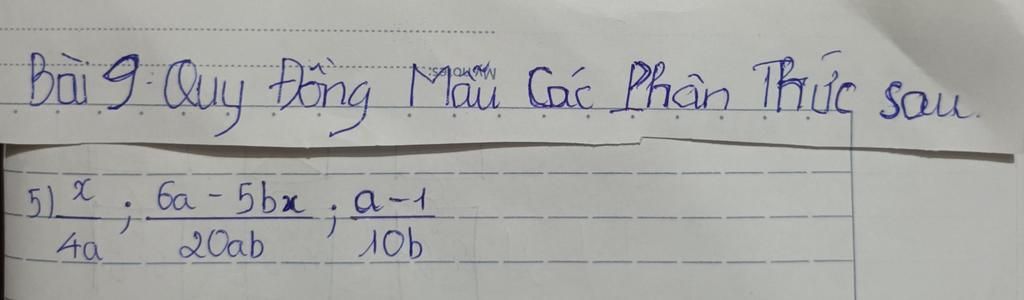 Bài 9: Quy Đồng Mẫu Các Phân Thức sau.
5) x/4a ; 6a - 5bx/20ab ; a - 1/10b